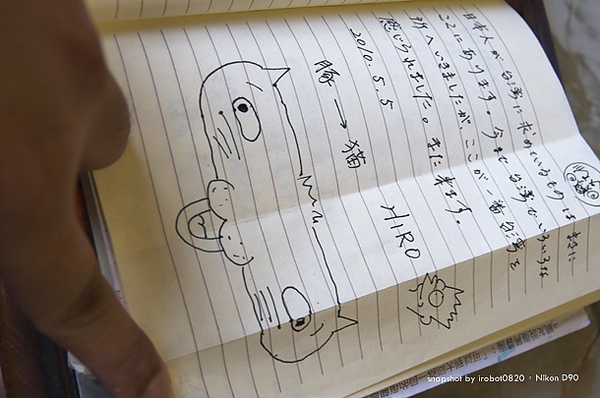 日本人が台湾に求めているものは まさに
ここにあります。今まで台湾でいろいろな
所へいきましたが、ここが一番台湾を
感じられました。また来ます。
2010.5.5 HIRO
豚 → 猫
snapshot by irobot0820，Nikon D90